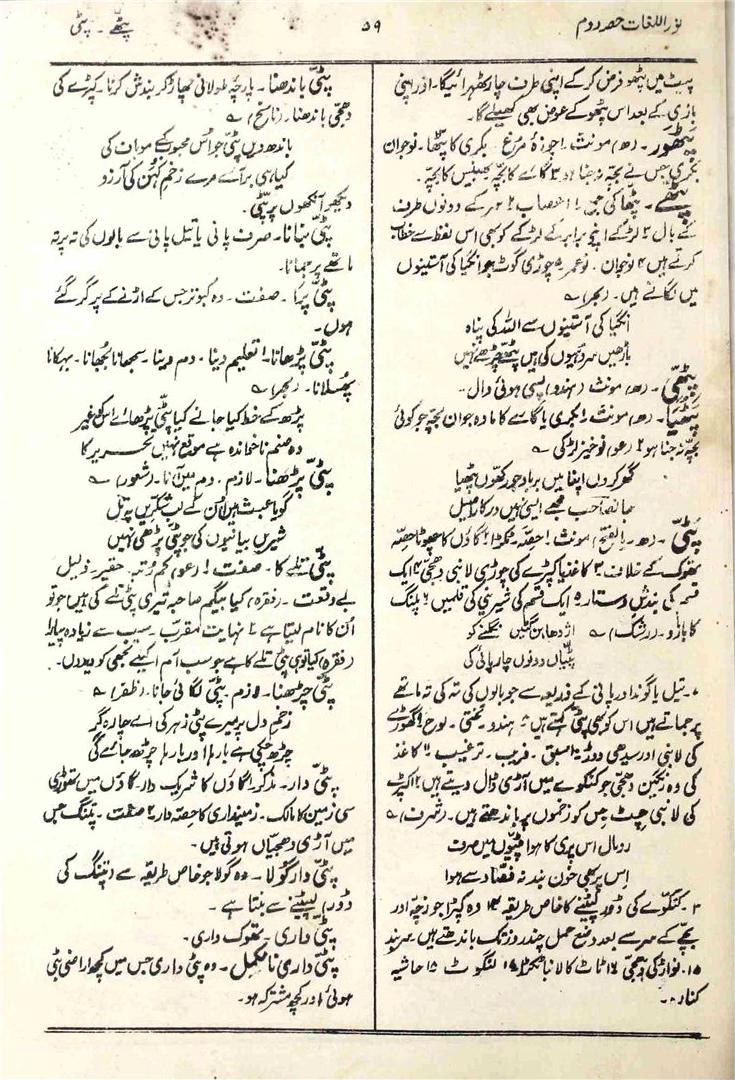 نور اللغات حصہ دوم
۵۹
پٹھے ۔ پٹی
پیٹ میں پٹھو فرض کر کے اپنی طرف جا ٹھہرائیگا۔ اور اپنی
بازی کے بعد اس پٹھو کے عوض بھی کھیلے گا۔
پٹھور ۔ (ھ) مونث ۱ چوزۂ مرغ ۲ بکری کا پٹھا۔ نوجوان
بکری جس نے بچّہ نہ جنا ہو ۳ گائے کا بچّہ بھینس کا بچّہ۔
پٹھے ۔ پٹھا کی جمع ۱ اعصاب ۲ سر کے دونوں طرف
کے بال ۳ لڑکے اپنے برابر کے لڑکے کو بھی اس لفظ سے خطاب
کرتے ہیں ۴ نوجوان ۔ نو عمر ۵ چوڑی گوٹ جو انگیا کی آستینوں
میں لگاتے ہیں ۔ (بحر) ؎
انگیا کی آستینوں سے اللہ کی پناہ
باڑھیں سروہیوں کی ہیں پٹھے چڑھے نہیں
پٹھی ۔ (ھ) مونث (ہندو) پسی ہوئی دال۔
پٹھیا ۔ (ھ) مونث ۱ بکری یا گائے کا مادہ جوان بچہ جو کوئی
بچّہ نہ جنا ہو ۲ (عو) نوخیز لڑکی ؎
گھوکروں اپنا میں برباد جو رکھوں پٹھیا
جانصاحب مجھے ایسی نہیں درکار اصیل
پٹّی ۔ (ھ ۔ بالفتح) مونث ۱ حصّہ ۔ ٹکڑا ۲ گاؤں کا چھوٹا حصّہ
تھوک کے خلاف ۳ کاغذ یا کپڑے کی چوڑی لانبی دھجّی ۴ ایک
قسم کی بندش دستار ۵ ایک قسم کی شیرینی کی قلمیں ۶ پلنگ
کا بازو ۔ (رشک) ؎ اژدھا بن گئیں نگلنے کو
پٹیاں دونوں چارپائی کی
۷ ۔ تیل یا گوند اور پانی کے ذریعہ سے جو بالوں کی تہ کی تہ ماتھے
پر جماتے ہیں اس کو بھی پٹی کہتے ہیں ۸ ہندو ۔ تختی ۔ لوح ۹ گھوڑے
کی لانبی اور سیدھی دوڑ ۱۰ سبق ۔ فریب ۔ ترغیب ۱۱ کاغذ
کی وہ رنگین دھجّی جو کنکوے میں آڑی ڈال دیتے ہیں ۱۲ کپڑے
کی لانبی چٹ جس کو زخموں پر باندھتے ہیں ۔ (شرف) ؎
رومال اس پری کا ہوا پٹیوں میں صرف
اس پر بھی خون بند نہ فصّاد سے ہوا
۱۳ ۔ کنکوّے کی ڈور لپیٹنے کا خاص طریقہ ۱۴ وہ کپڑا جو زچّہ اور
بچّے کے سر سے بعد وضع حمل چند روز تک باندھتے ہیں سربند
۱۵ ۔ نواڑ کی دھجّی ۱۶ ٹاٹ کا لانبا ٹکڑا ۱۷ لنگوٹ ۱۸ حاشیہ
کنارہ ۔
پٹّی باندھنا ۔ پارچۂ طولانی پھاڑ کر بندش کرنا ۔ کپڑے کی
دھجّی باندھنا ۔ (ناسخ) ؎
باندھ دیں پٹّی جو اُس محبوب کے موباف کی
کیا ہی بر آئے مرے زخم کہن کی آرزو
دیکھو آنکھوں پر پٹی۔
پٹّی بنانا ۔ صرف پانی یا تیل پانی سے بالوں کی تہ پر تہ
ماتھے پر جمانا ۔
پٹّی پرا ۔ صفت ۔ وہ کبوتر جس کے اڑنے کے پر گر گئے
ہوں ۔
پٹّی پڑھانا ۔ ۱ تعلیم دینا ۔ دم دینا ۔ سمجھانا بجھانا ۔ بہکانا
پھُسلانا ۔ (بحر) ؎
پڑھ کے خط کیا جانے کیا پٹّی پڑھائے اس کو غیر
وہ صنم ناخواندہ ہے موقع نہیں تحریر کا
پٹّی پڑھنا ۔ لازم ۔ دم میں آنا ۔ (شعور) ؎
گویا عبث ہیں اُن کے لب شکریں پہ تل
شیریں بیانیوں کی جو پٹّی پڑھی نہیں
پٹّی تلے کا ۔ صفت ۱ (عو) کم رُتبہ ۔ حقیر ۔ ذلیل
بے وقعت ۔ (فقرہ) کیا بیگم صاحبہ تیری پٹّی تلے کی ہیں جو تو
اُن کا نام لیتا ہے ۲ نہایت مقرّب ۔ سب سے زیادہ پیارا
(فقرہ) کیا تو ہی پٹّی تلے کا ہے جو سب آم اکیلے تجھی کو دیدوں ۔
پٹّی چڑھنا ۔ لازم ۔ پٹّی لگائی جانا ۔ (ظفر) ؎
زخم دل پر میرے پٹّی زہر کی اے چارہ گر
چڑھ چکی ہے بارہا اور بارہا چڑھ جائے گی
پٹّی دار ۔ مذکر ۱ گاؤں کا شریک دار ۔ گاؤں میں تھوڑی
سی زمین کا مالک ۔ زمینداری کا حصّہ دار ۲ صفت ۔ پتنگ جس
میں آڑی دھجیّاں ہوتی ہیں ۔
پٹّی دار گولا ۔ وہ گولا جو خاص طریقہ سے (پتنگ کی
ڈور) لپیٹنے سے بنتا ہے ۔
پٹّی داری ۔ تھوک داری ۔
پٹّی داری نامکمل ۔ وہ پٹّی داری جس میں کچھ اراضی بٹی
ہوئی اور کچھ مشترکہ ہو ۔